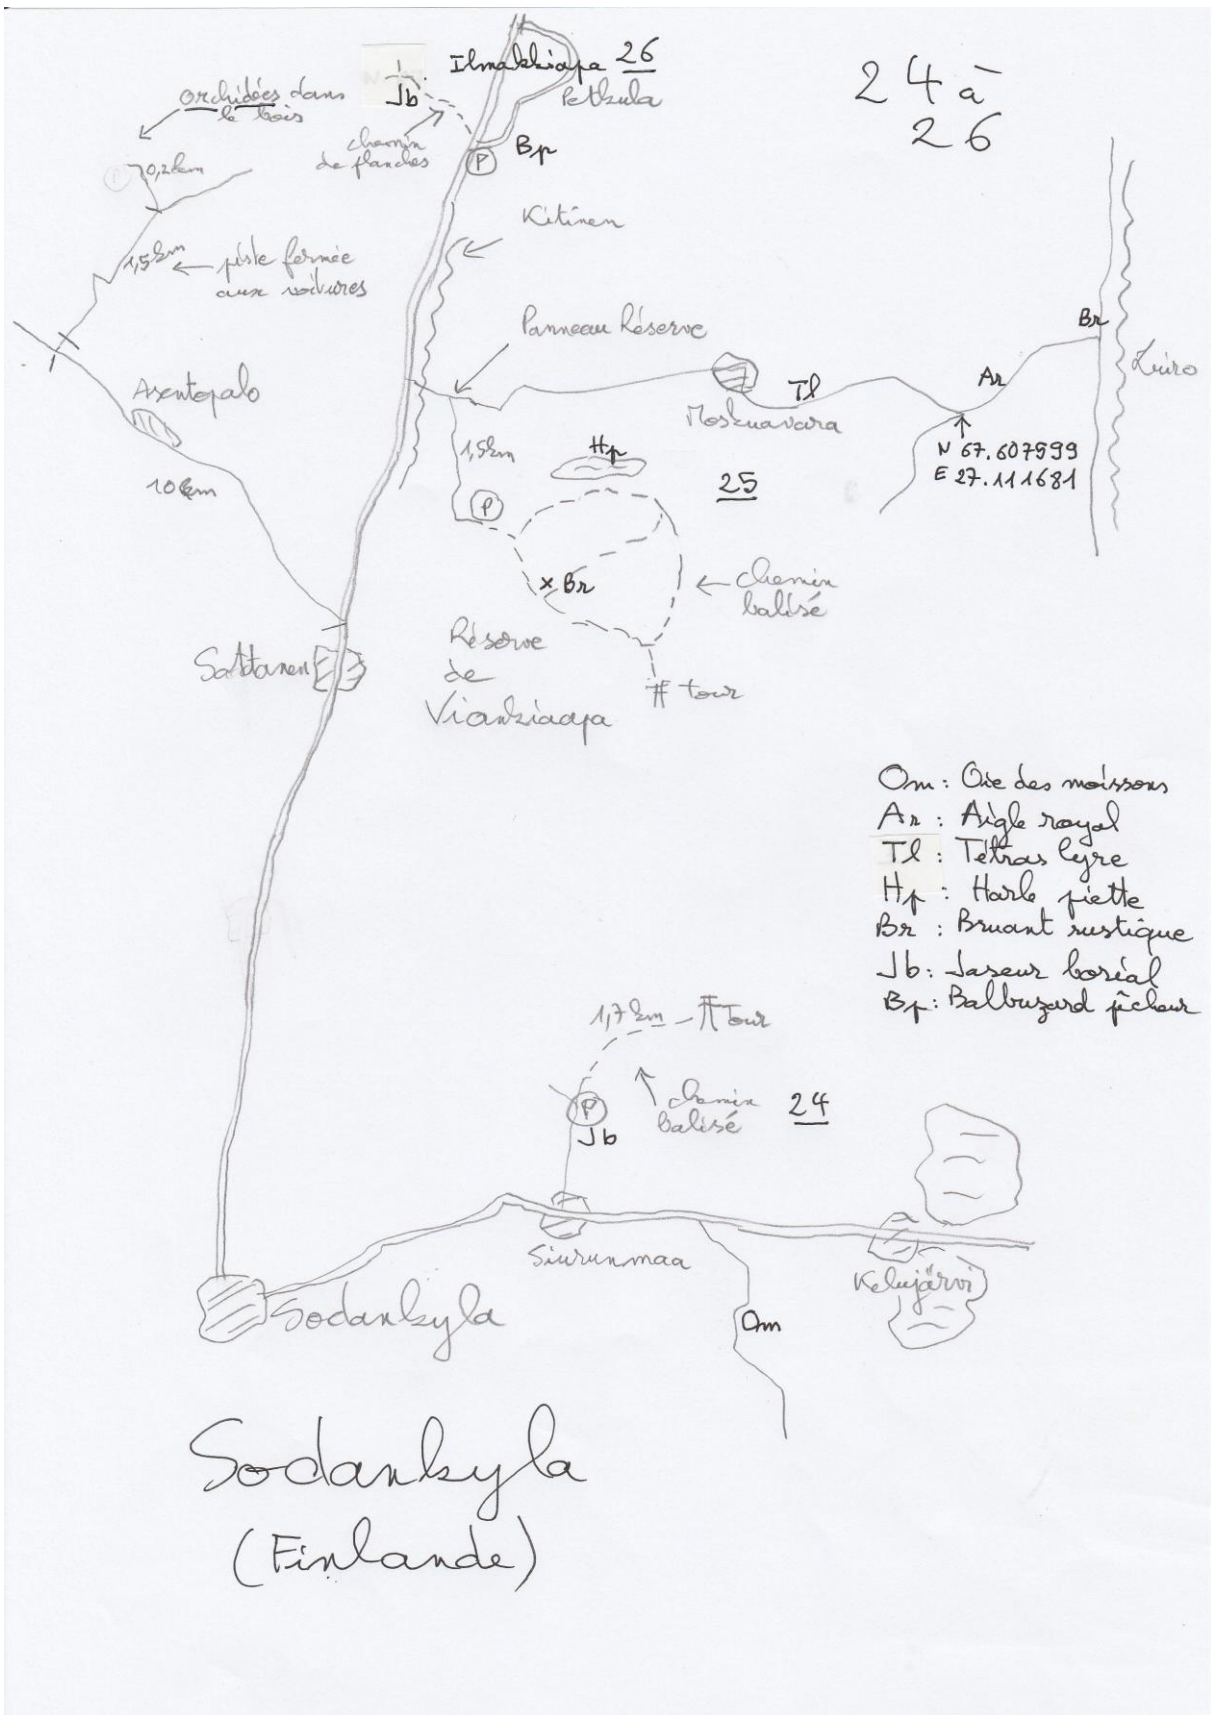 Ilmakkiapa 26
Petkula
24 à
26
orchidées dans
le bois
Jb
chemin
de planches
P
Bp
P
0,2km
Kitinen
1,5km
piste fermée
aux voitures
Panneau Réserve
Br
Luiro
Asentopalo
Tl
Ar
Moskuavara
N 67.607599
E 27.111681
1,5km
Hp
25
10km
P
x Br
chemin
balisé
Réserve
de
Viankiaapa
tour
Sattanen
Om : Oie des moissons
Ar : Aigle royal
Tl : Tétras lyre
Hp : Harle piette
Br : Bruant rustique
Jb : Jaseur boréal
Bp : Balbuzard pêcheur
1,7km
Tour
P
Jb
chemin
balisé
24
Siurunmaa
Kelujärvi
Sodankyla
Om
Sodankyla
(Finlande)